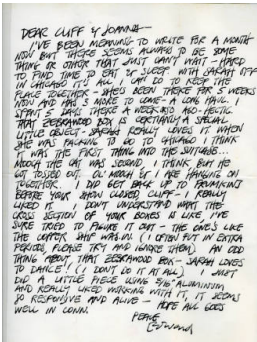 DEAR CLIFF & JOANNA—
I'VE BEEN MEANING TO WRITE FOR A MONTH
NOW BUT THERE SEEMS ALWAYS TO BE SOME
THING OR OTHER THAT JUST CAN'T WAIT - HARD
TO FIND TIME TO EAT & SLEEP WITH SARAH OFF
IN CHICAGO IT'S ALL I CAN DO TO KEEP THE
PLACE TOGETHER - SHE'S BEEN THERE FOR 5 WEEKS
NOW AND HAS 3 MORE TO COME - A LONG HAUL. I
SPENT 5 DAYS THERE A WEEK AGO - HECTIC.
THAT ZEBRAWOOD BOX IS CERTIANLY A SPECIAL
LITTLE OBJECT - SARAH REALLY LOVES IT. WHEN
SHE WAS PACKING TO GO TO CHICAGO I THINK
IT WAS THE FIRST THING INTO THE SUITCASE.
MOOCH THE CAT WAS SECOND I THINK BUT HE
GOT TOSSED OUT. OL' MOOCH & I ARE HANGING ON
TOGETHER. I DID GET BACK UP TO
BEFORE YOUR SHOW CLOSED CLIFF - I REALLY
LIKED IT. I DON'T UNDERSTAND WHAT THE
CROSS SECTION OF YOUR BOXES IS LIKE, I'VE
SURE TRIED TO FIGURE IT OUT - THE ONE'S LIKE
THE COPPER (I OFTEN PUT IN EXTRA
PERIODS, PLEASE TRY AND IGNORE THEM) AN ODD
THING ABOUT THAT ZEBRAWOOD BOX - SARAH LOVES
TO DANCE! (I DON'T DO IT AT ALL) I JUST
DID A LITTLE PIECE USING ALUMINUM
AND REALLY LIKED WORKING WITH IT, IT SEEMS
SO RESPONSIVE AND ALIVE - HOPE ALL GOES
WELL IN CONN.
PEACE